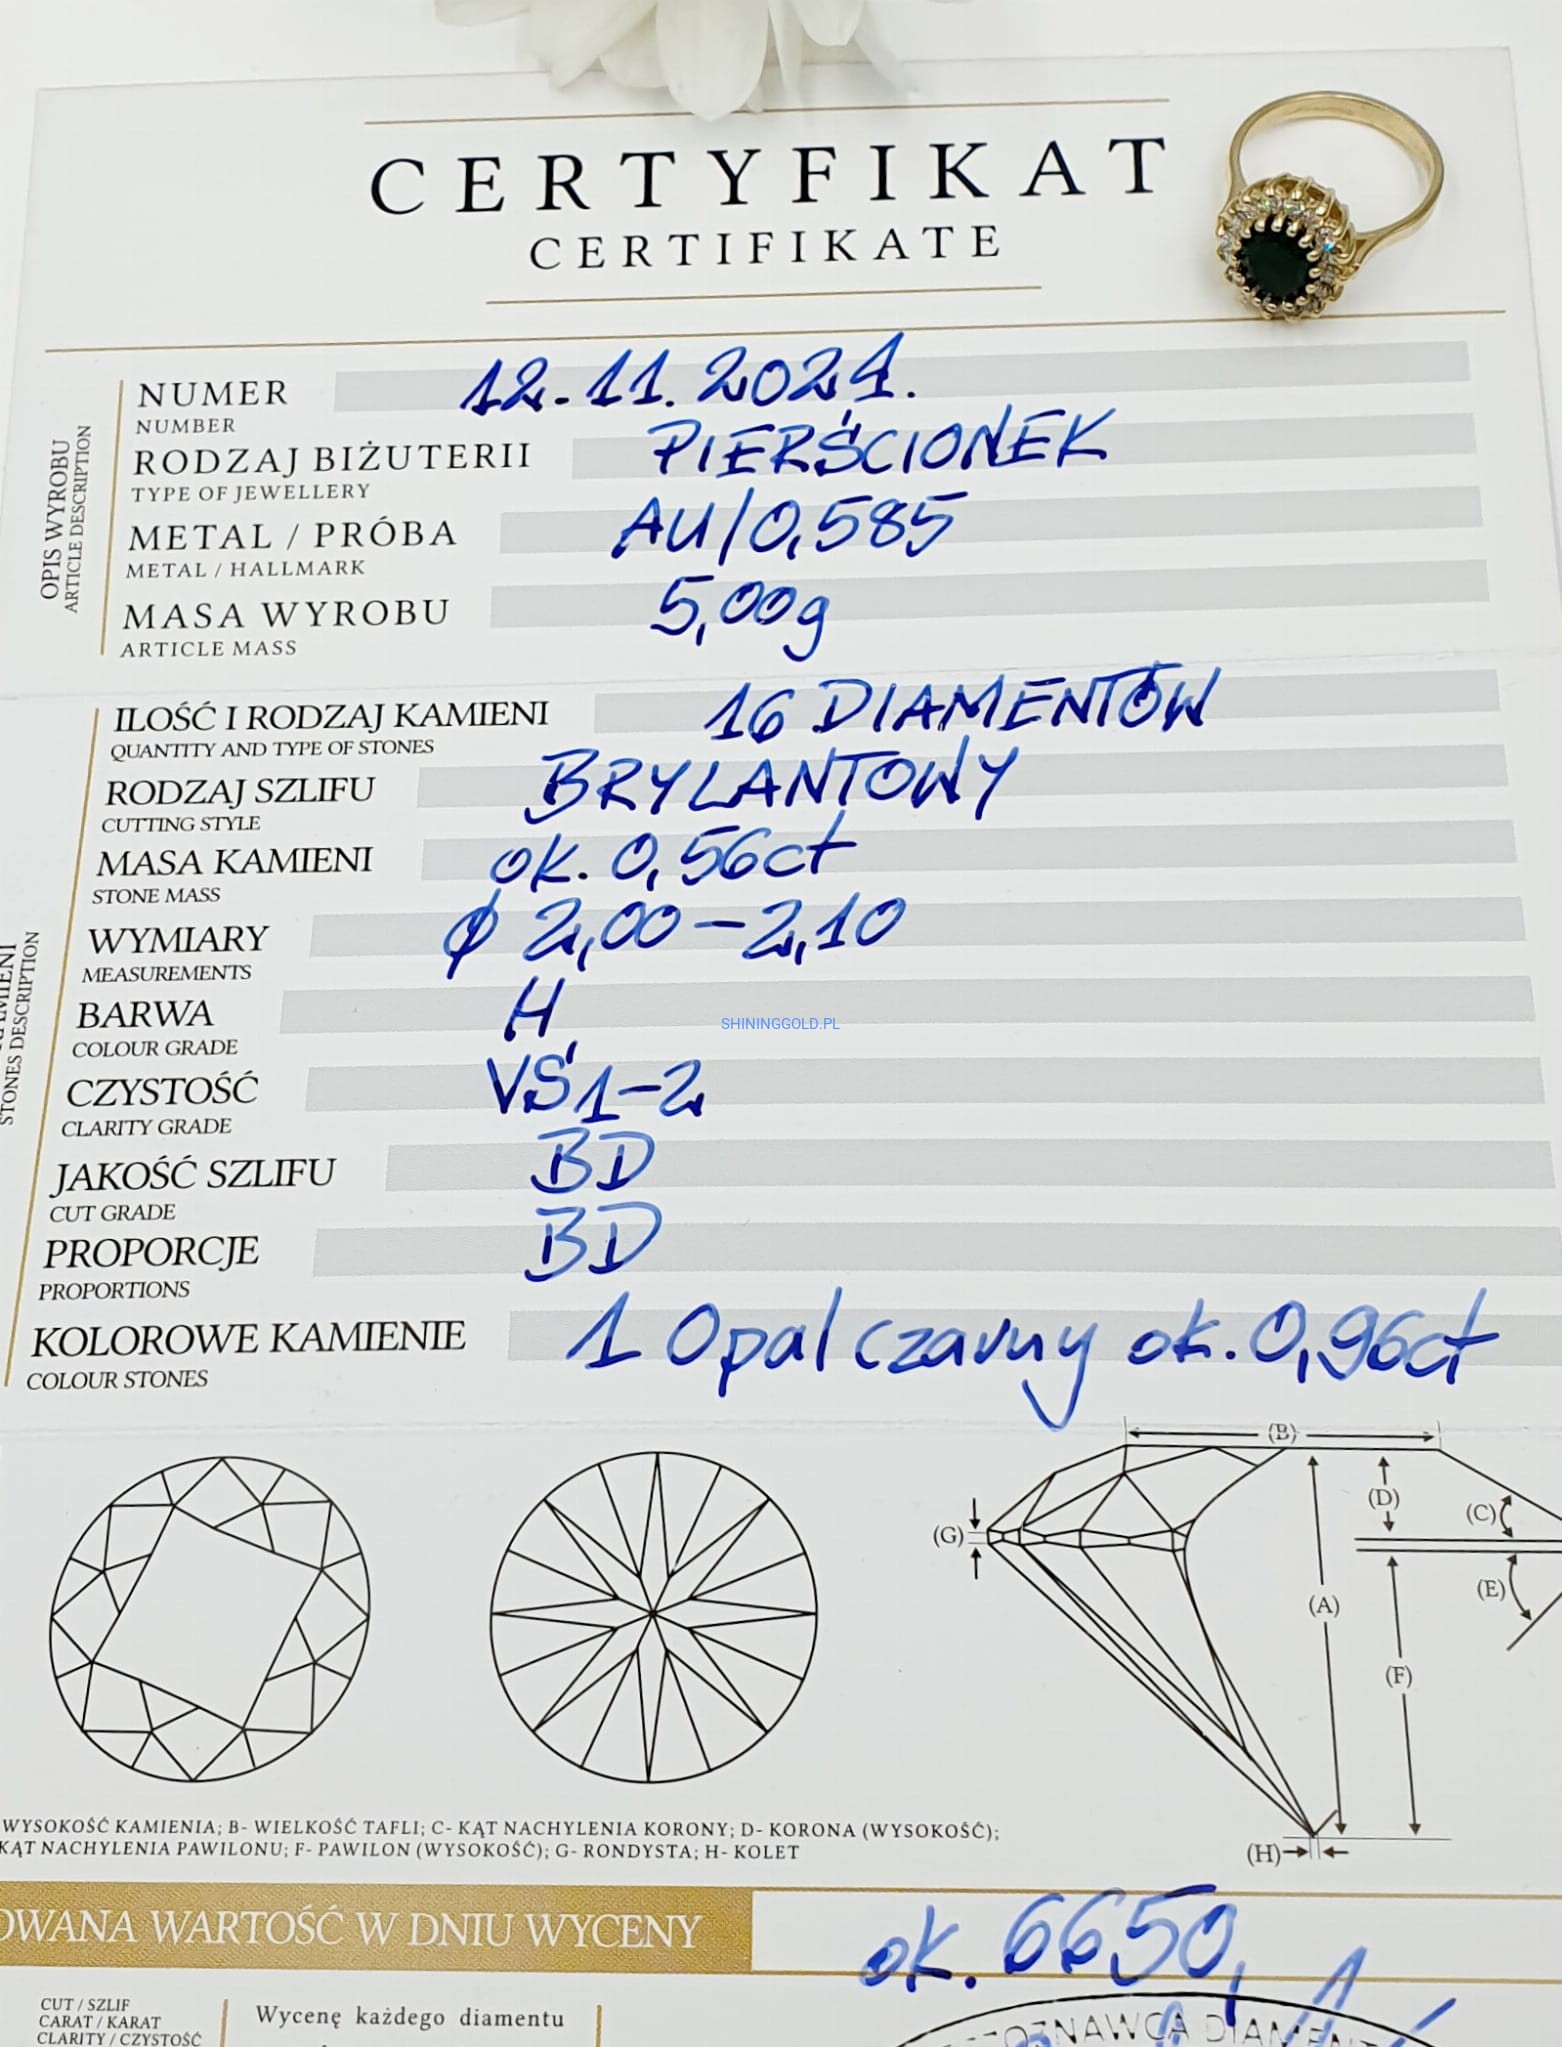 CERTYFIKAT
CERTIFIKATE
OPIS WYROBU
ARTICLE DESCRIPTION
NUMER 12.11.2024.
NUMBER
RODZAJ BIŻUTERII PIERŚCIONEK
TYPE OF JEWELLERY
METAL / PRÓBA AU/0,585
METAL / HALLMARK
MASA WYROBU 5,00g
ARTICLE MASS
STONES DESCRIPTION
ILOŚĆ I RODZAJ KAMIENI 16 DIAMENTÓW
QUANTITY AND TYPE OF STONES
RODZAJ SZLIFU BRYLANTOWY
CUTTING STYLE
MASA KAMIENI ok. 0,56ct
STONE MASS
WYMIARY ϕ 2,00-2,10
MEASUREMENTS
BARWA H
COLOUR GRADE
SHININGGOLD.PL
CZYSTOŚĆ VS 1-2
CLARITY GRADE
JAKOŚĆ SZLIFU BD
CUT GRADE
PROPORCJE BD
PROPORTIONS
KOLOROWE KAMIENIE 1 Opal czarny ok. 0,96ct
COLOUR STONES
(B)
(D)
(C)
(G)
(E)
(A)
(F)
(H)
WYSOKOŚĆ KAMIENIA; B- WIELKOŚĆ TAFLI; C- KĄT NACHYLENIA KORONY; D- KORONA (WYSOKOŚĆ);
KĄT NACHYLENIA PAWILONU; F- PAWILON (WYSOKOŚĆ); G- RONDYSTA; H- KOLET
OWANA WARTOŚĆ W DNIU WYCENY ok. 6650,
CUT / SZLIF
CARAT / KARAT
CLARITY / CZYSTOŚĆ
Wycenę każdego diamentu